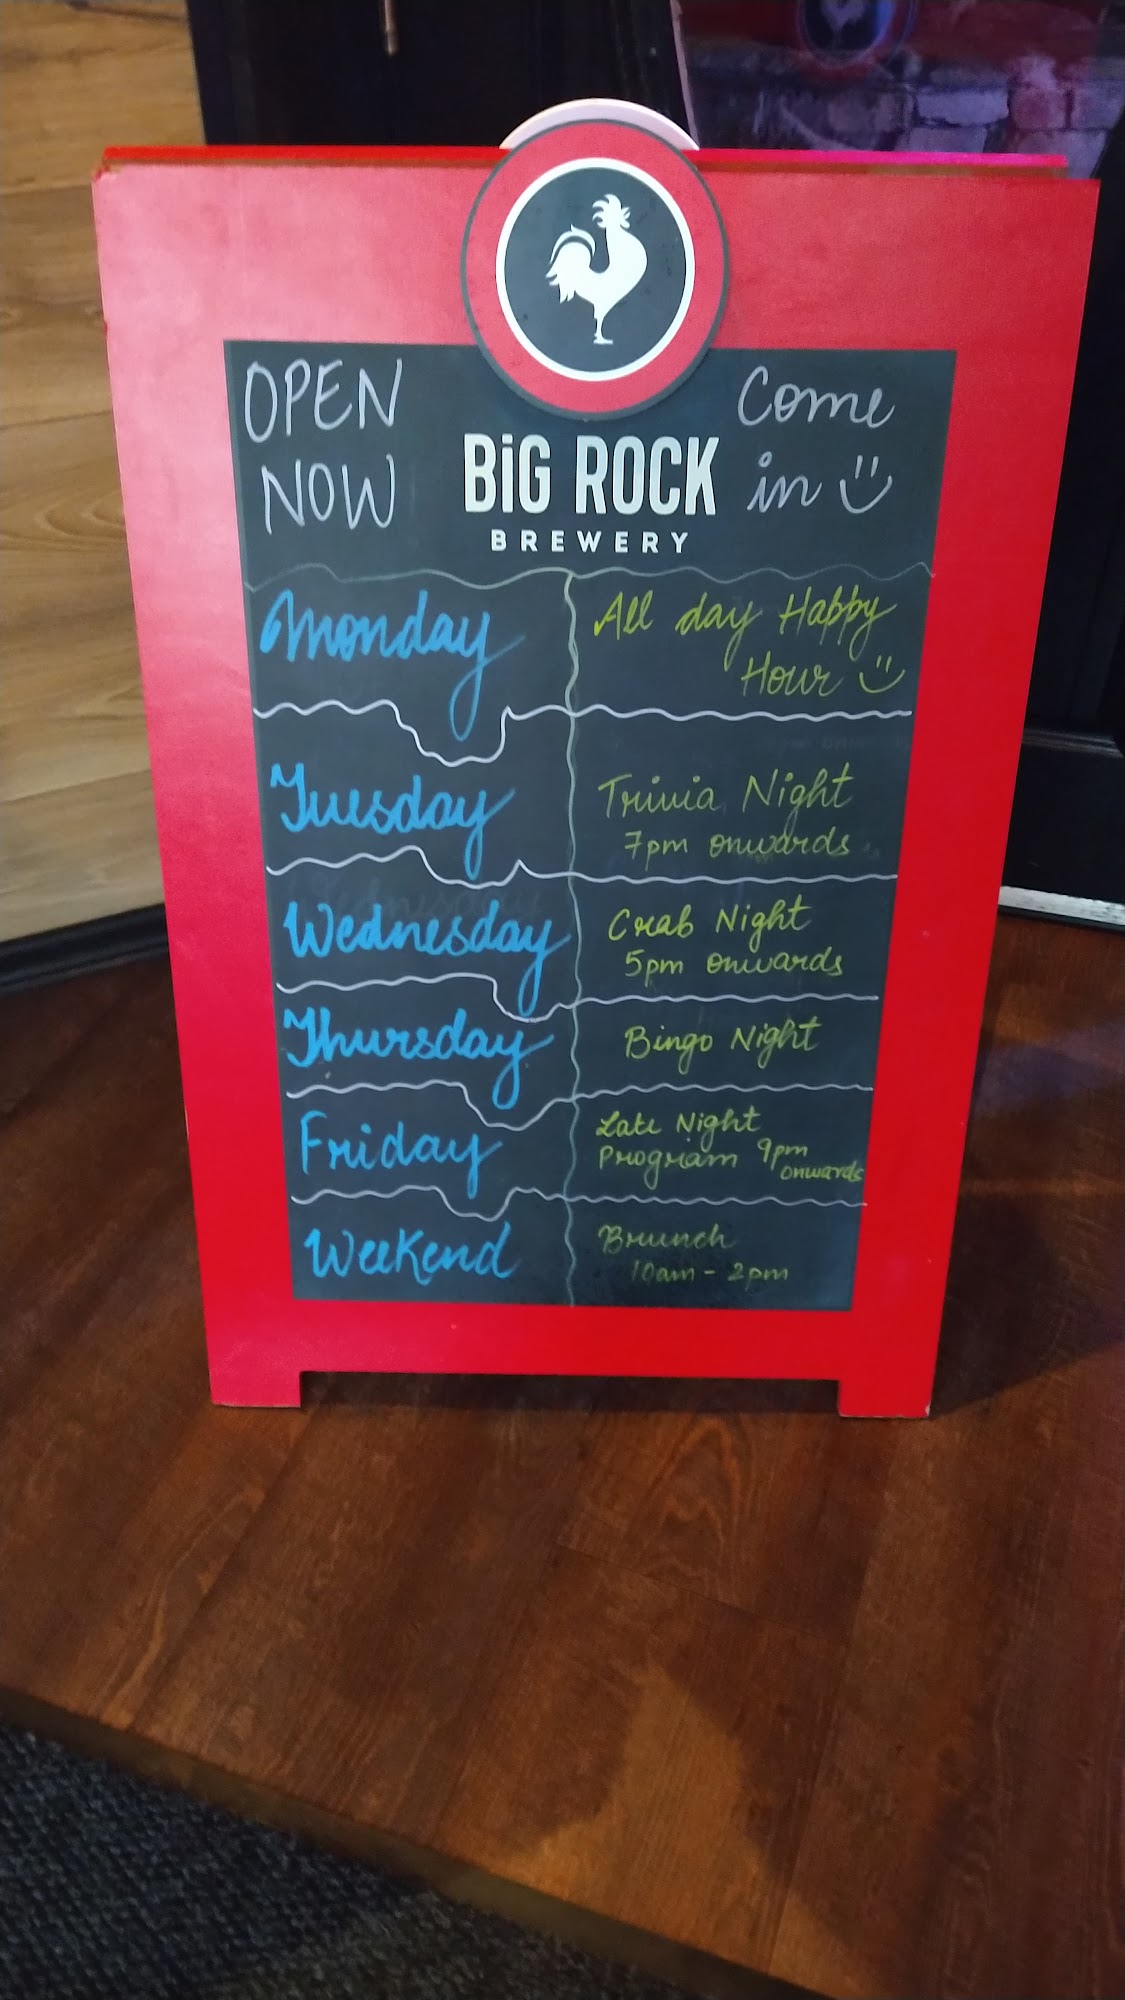 OPEN
NOW
Come
in
BiG ROCK
BREWERY
Monday
All day Happy
Hour
Tuesday
Trivia Night
7pm onwards
Wednesday
Crab Night
5pm onwards
Thursday
Bingo Night
Friday
Late Night
Program 9pm
onwards
Weekend
Brunch
10am - 2pm